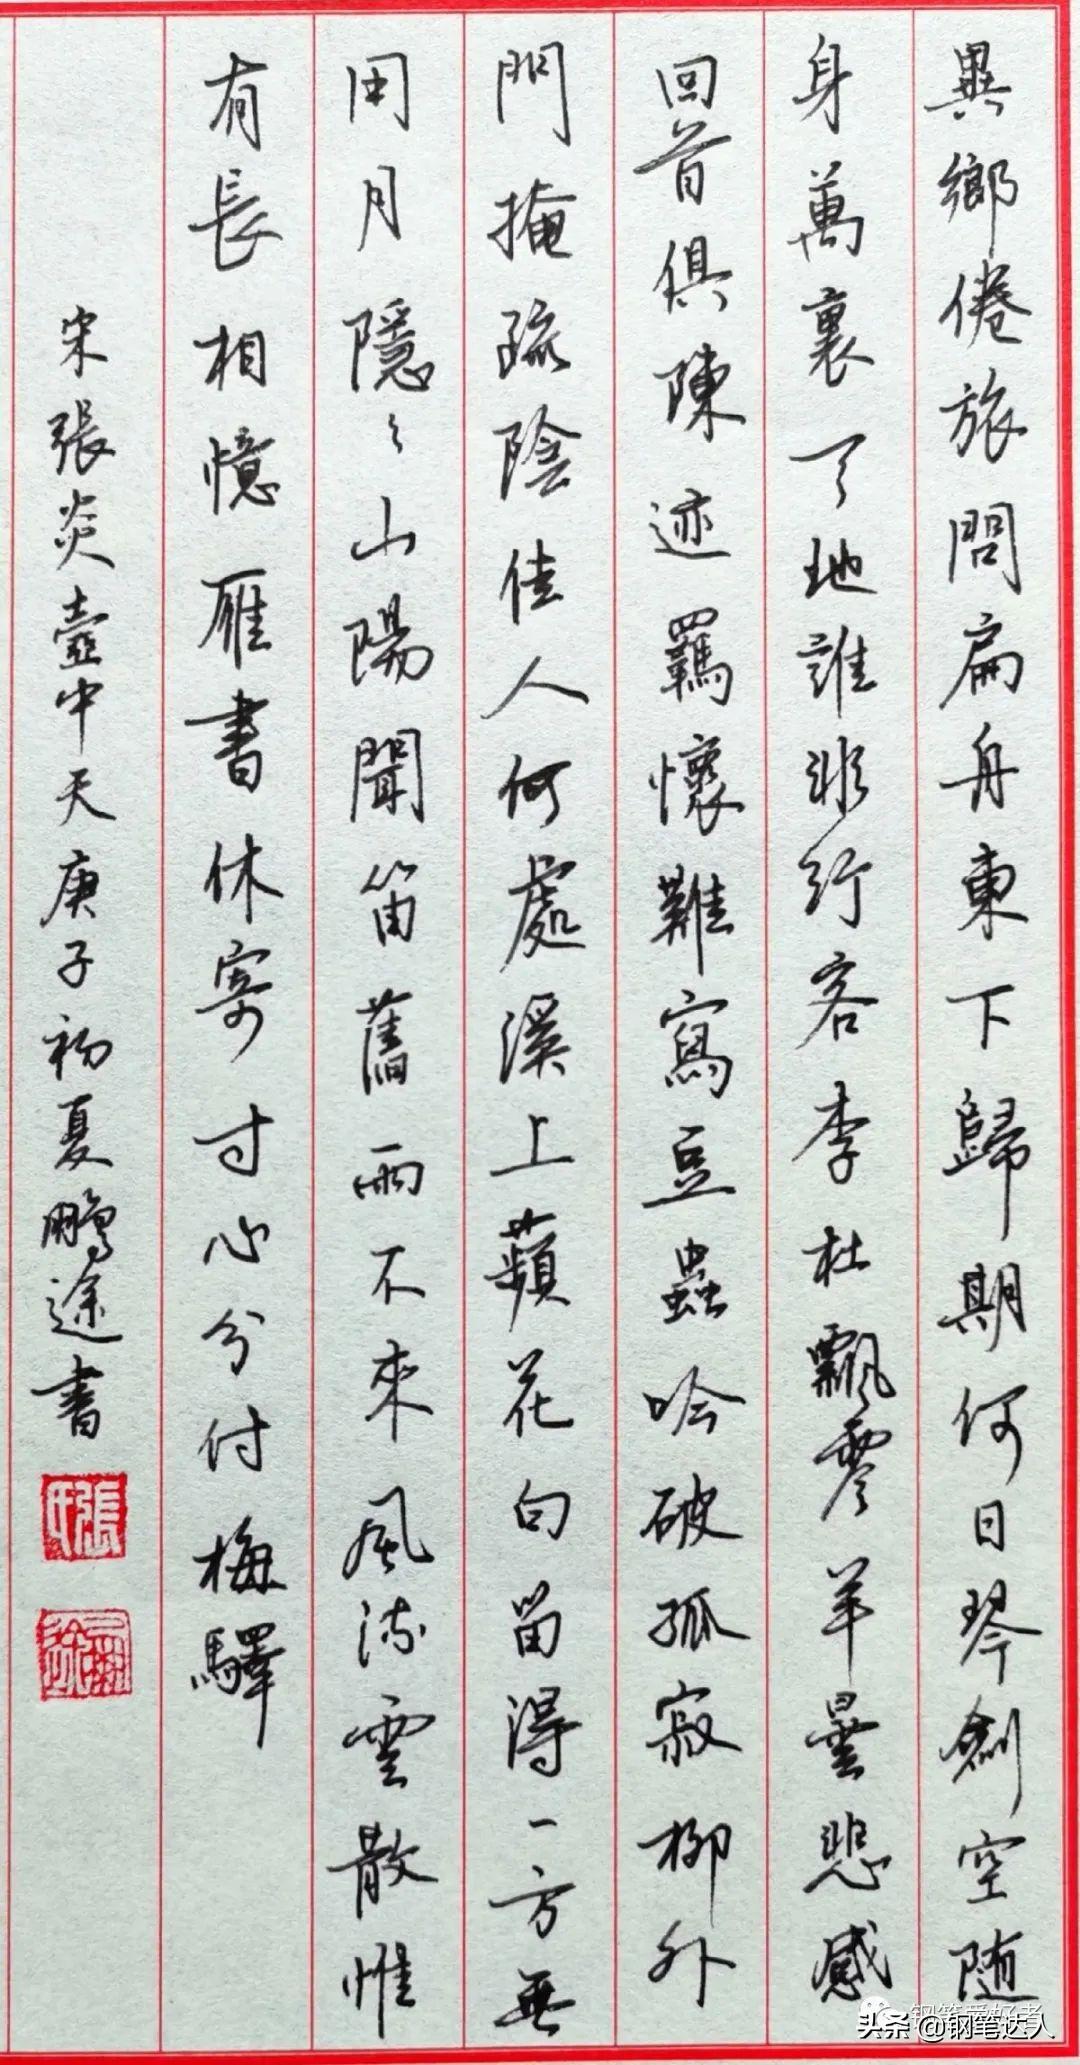 異鄉倦旅問扁舟東下歸期何日琴劍空随
身萬裏天地誰非行客李杜飄零羊曇悲感
回首俱陳迹羈懷難寫豆蟲吟破孤寂柳外
門掩疏陰佳人何處溪上蘋花白留得一方無
用月隱〻山陽聞笛舊雨不來風流雲散惟
有長相憶雁書休寄寸心分付梅驛
宋張炎壺中天庚子初夏鵬途書
張氏
钢笔爱好者
头条 @钢笔达人